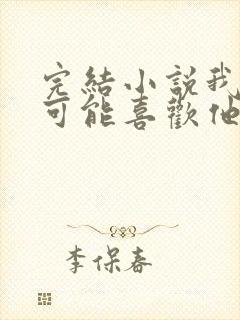 完結小説我
可能喜歡他
李保春